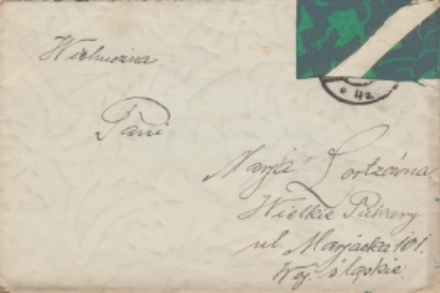 Wielmożna
Pani
Marja Lortzówna
Wielkie Piekary
ul. Marjacka 101.
Woj. śląskie.